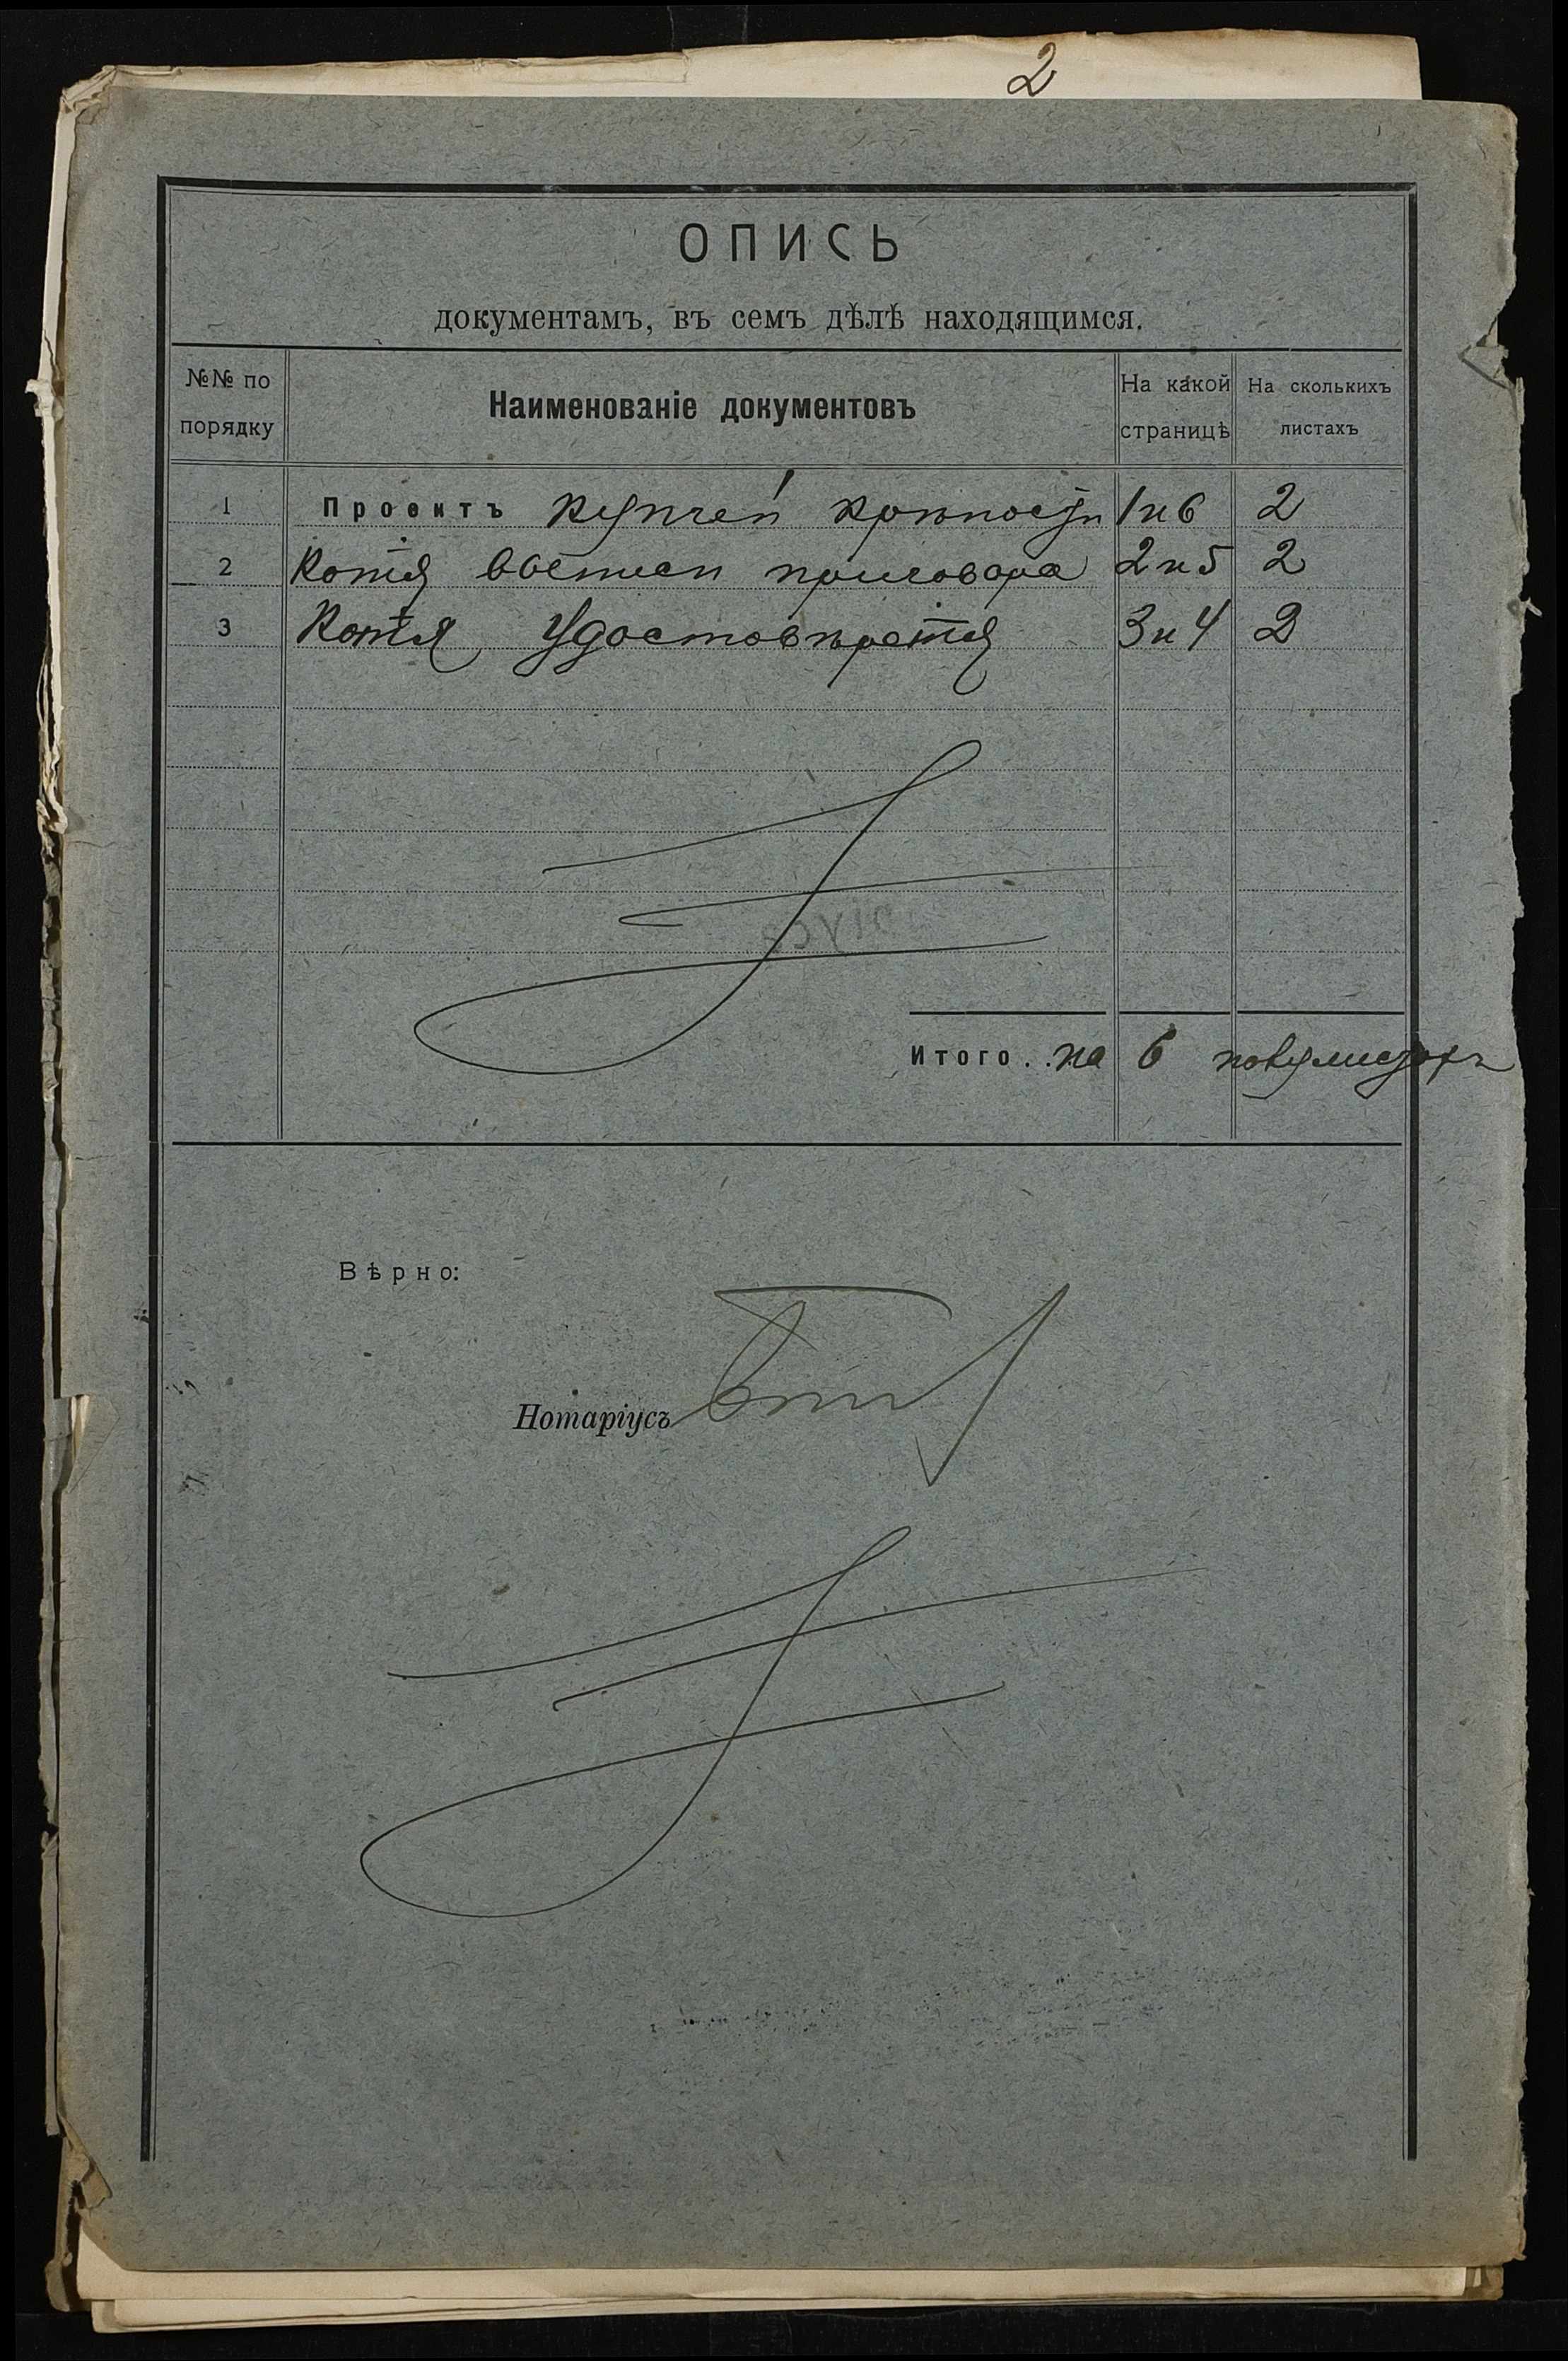 2
ОПИСЬ
документамъ, въ семъ дѣлѣ находящимся.
№№ по порядку Наименованіе документовъ На какой страницѣ На сколькихъ листахъ
1 Проектъ купчей крѣпости 1 и 6 2
2 Копія выписи приговора 2 и 5 2
3 Копія удостовѣренія 3 и 4 2
Итого . . на 6 полулистахъ
Вѣрно:
Нотаріусъ